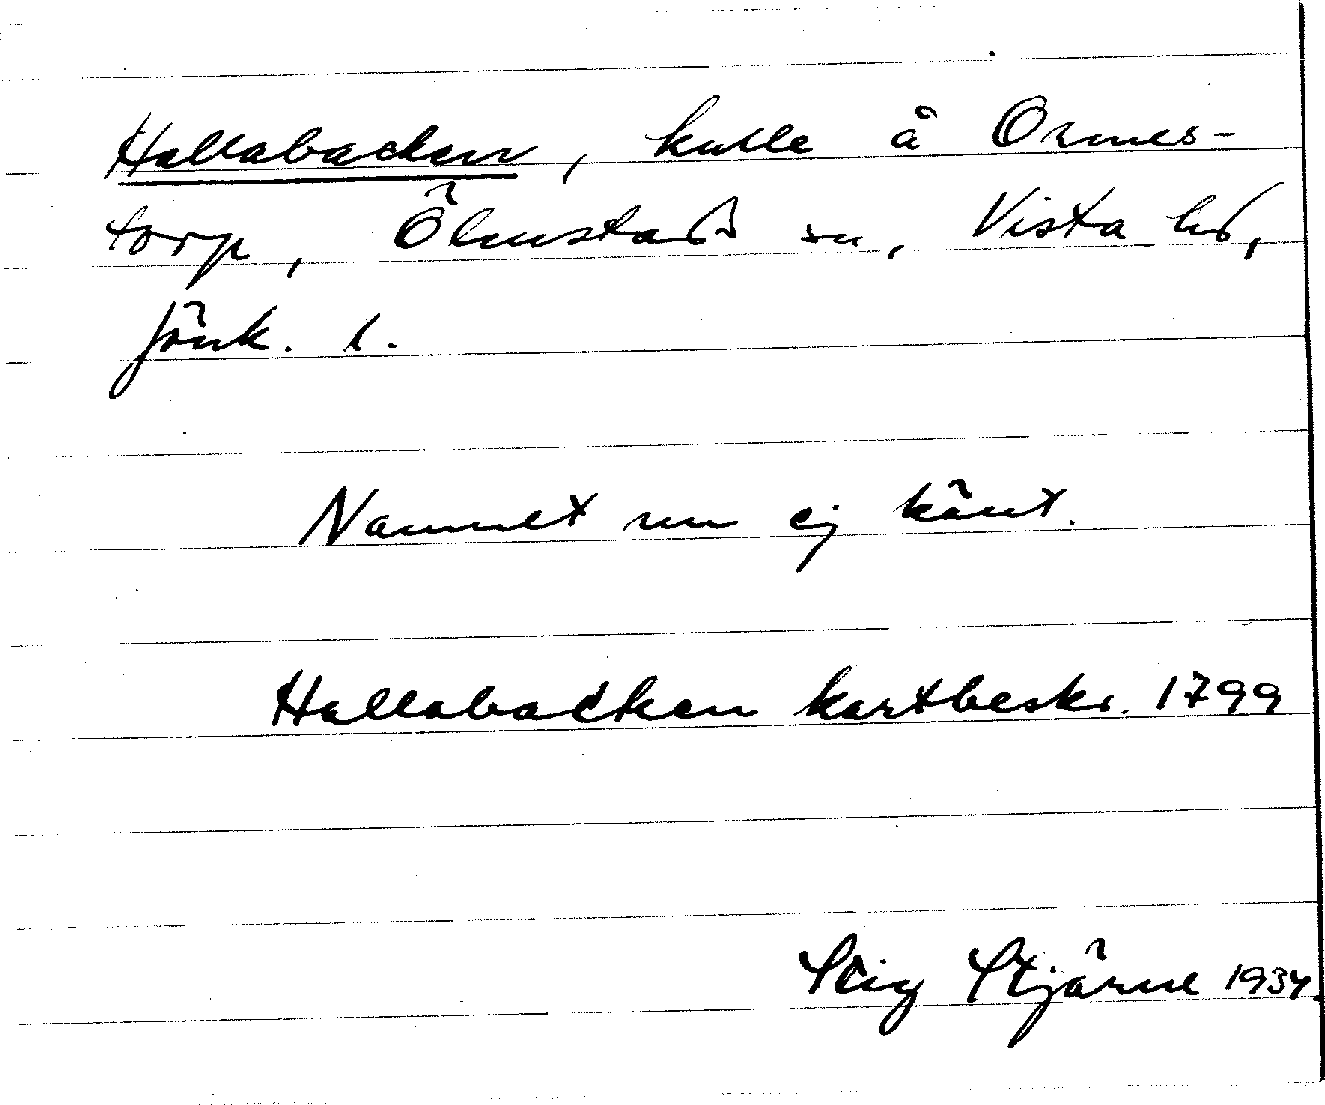 Hallabacken, kulle å Ormes-
torp, Ölmstad sn, Vista hd,
Jönk. l.
Namnet nu ej känt.
Hallabacken kartbeskr. 1799
Stig Stjärne 1934.